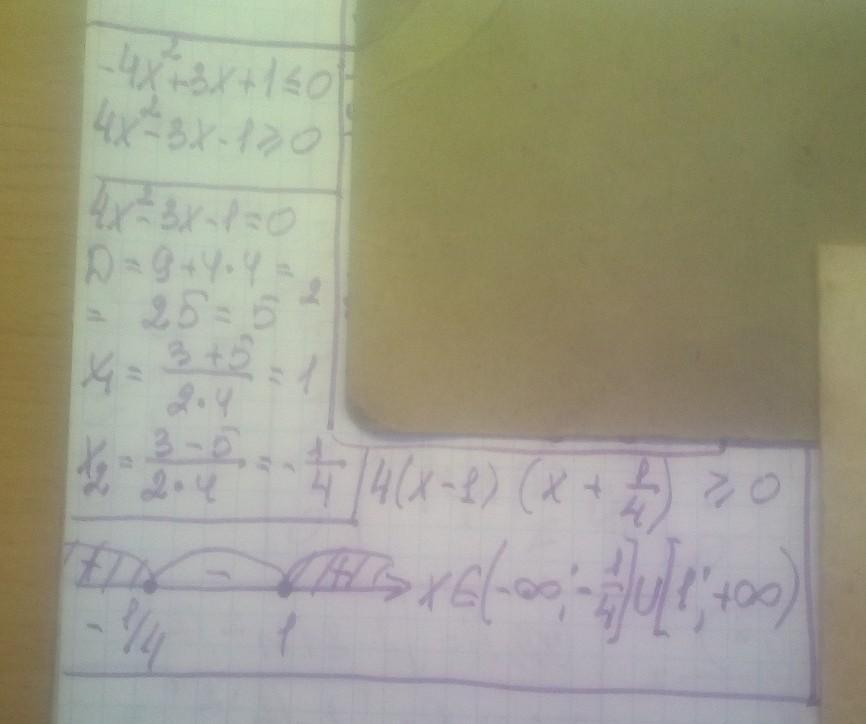 -4x²+3x+1≤0
4x²-3x-1≥0
4x²-3x-1=0
D=9+4·4=
= 25=5²
x₁ = (3+5)/(2·4) = 1
x₂ = (3-5)/(2·4) = -1/4
4(x-1) (x + 1/4) ≥ 0
+ - +
-1/4 1
x∈(-∞;-1/4]∪[1;+∞)